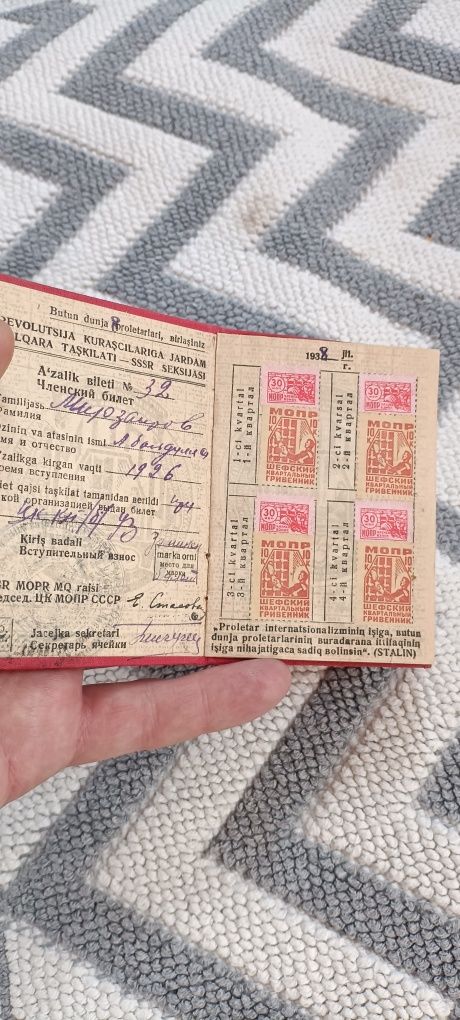 Butun dunja proletarlari, birlaşiniz
REVOLUTSIJA KURAŞCILARIGA JARDAM
TAŞKILATI — SSSR SEKSIJASI
A'zalik bileti № 32
Членский билет
Familijasь Мирзаиров
Фамилия
Ozinin va atasinin ismi
имя и отчество
A'zalikga kirgan vaqti 1926
время вступления
Bilet qajsi taşkilat tamanidan berildi
какой организацией выдан билет
Kiriş badali
Вступительный взнос
marka orni
место для
марки
SSSR MOPR MQ raisi
Председ. ЦК МОПР СССР Е. Стасова
Jacejka sekretari
Секретарь ячейки
1938 jil.
г.
1-ci kvartal
1-й квартал
30
МОПР
МОПР
10 К
ШЕФСКИЙ
КВАРТАЛЬНЫЙ
ГРИВЕННИК
2-ci kvartal
2-й квартал
30
МОПР
МОПР
10 К
ШЕФСКИЙ
КВАРТАЛЬНЫЙ
ГРИВЕННИК
3-ci kvartal
3-й квартал
30
МОПР
МОПР
10 К
ШЕФСКИЙ
КВАРТАЛЬНЫЙ
ГРИВЕННИК
4-ci kvartal
4-й квартал
30
МОПР
МОПР
10 К
ШЕФСКИЙ
КВАРТАЛЬНЫЙ
ГРИВЕННИК
„Proletar internatsionalizminin işiga, butun
dunja proletarlarinin buradarana ittifaqinin
işiga nihajatigaca sadiq bolinsin“. (STALIN)